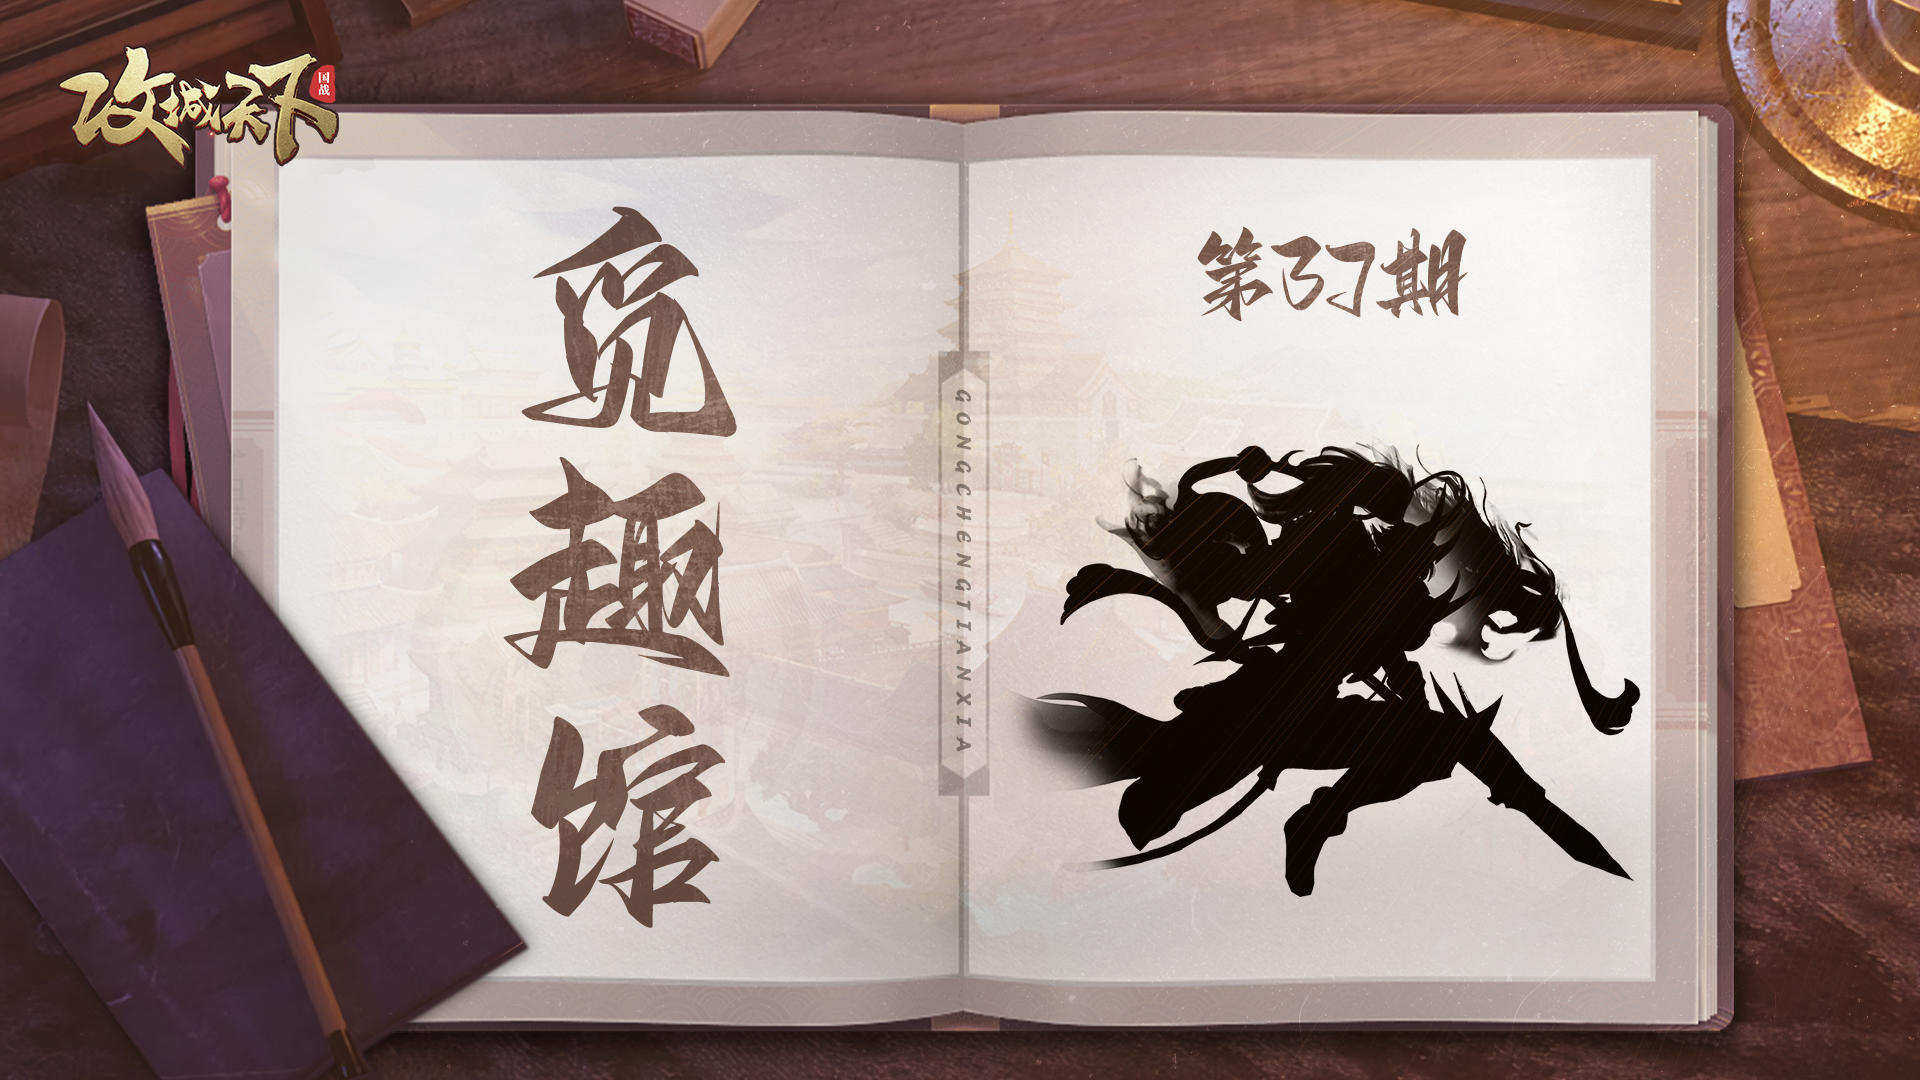 攻城天下
国战
觅趣馆
第37期
GONGCHENGTIANXIA